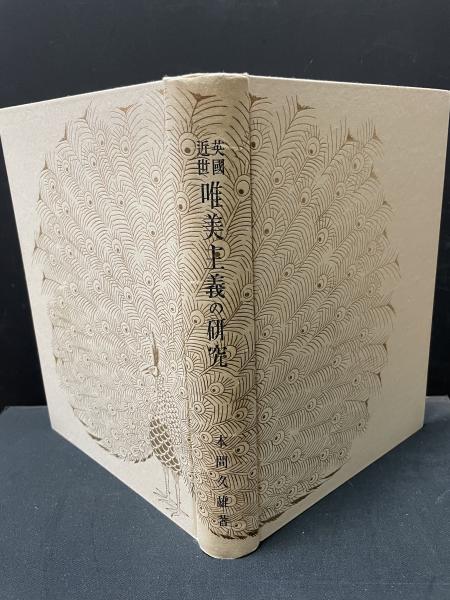 英國
近世
唯美主義の研究
本間久雄著